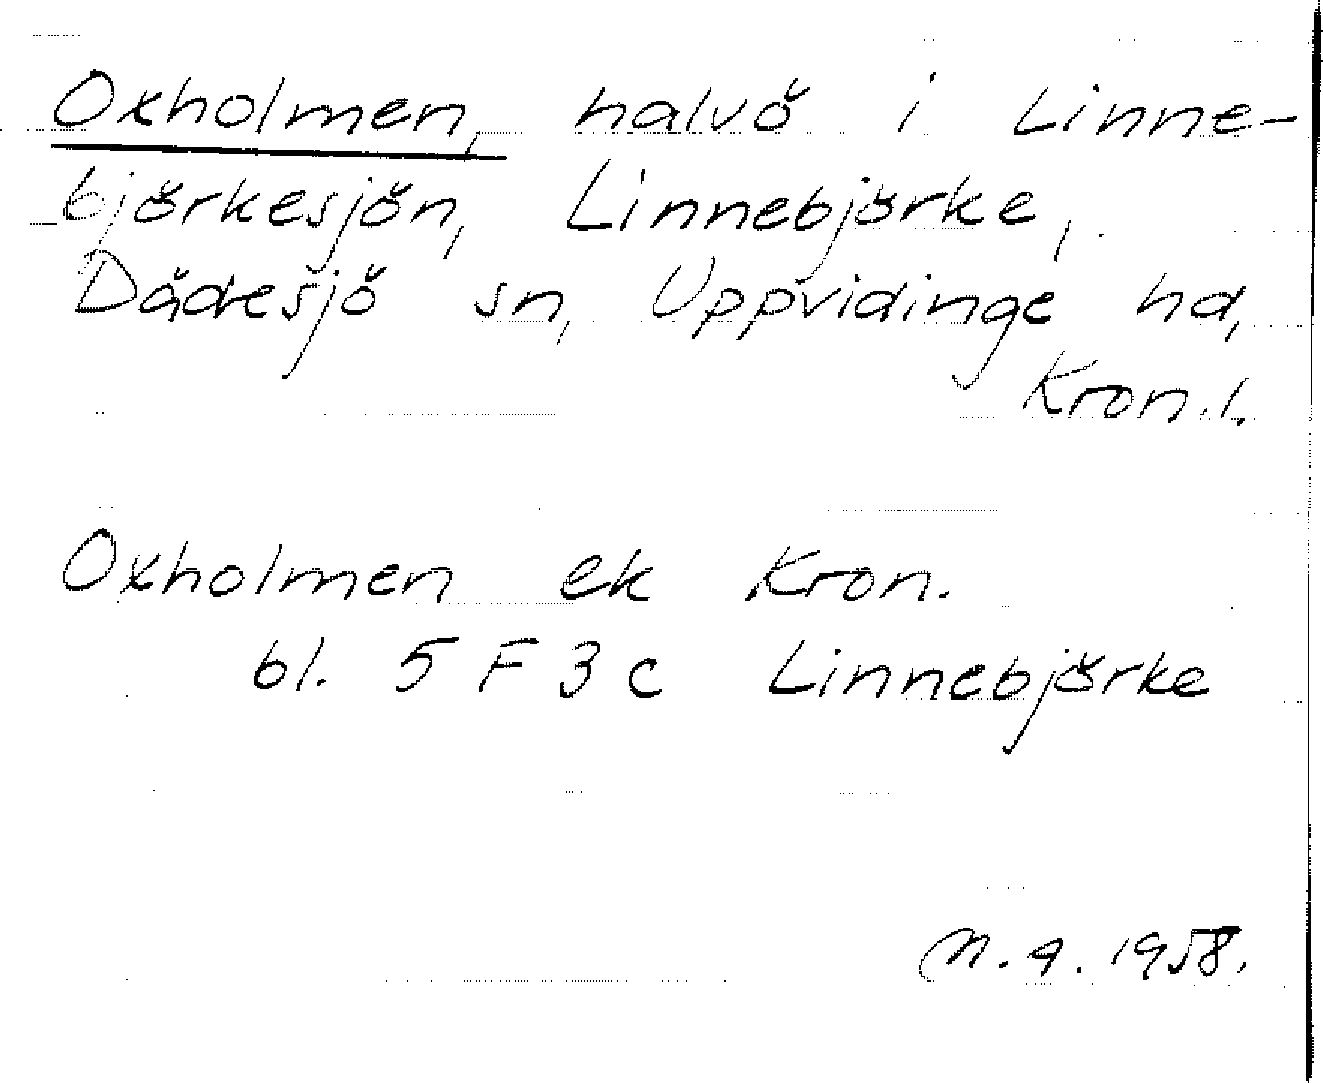 Oxholmen, halvö i Linne-
björkesjön, Linnebjörke,
Dädesjö sn, Uppvidinge hd,
Kron. l.
Oxholmen ek Kron.
bl. 5 F 3 c Linnebjörke
1958.